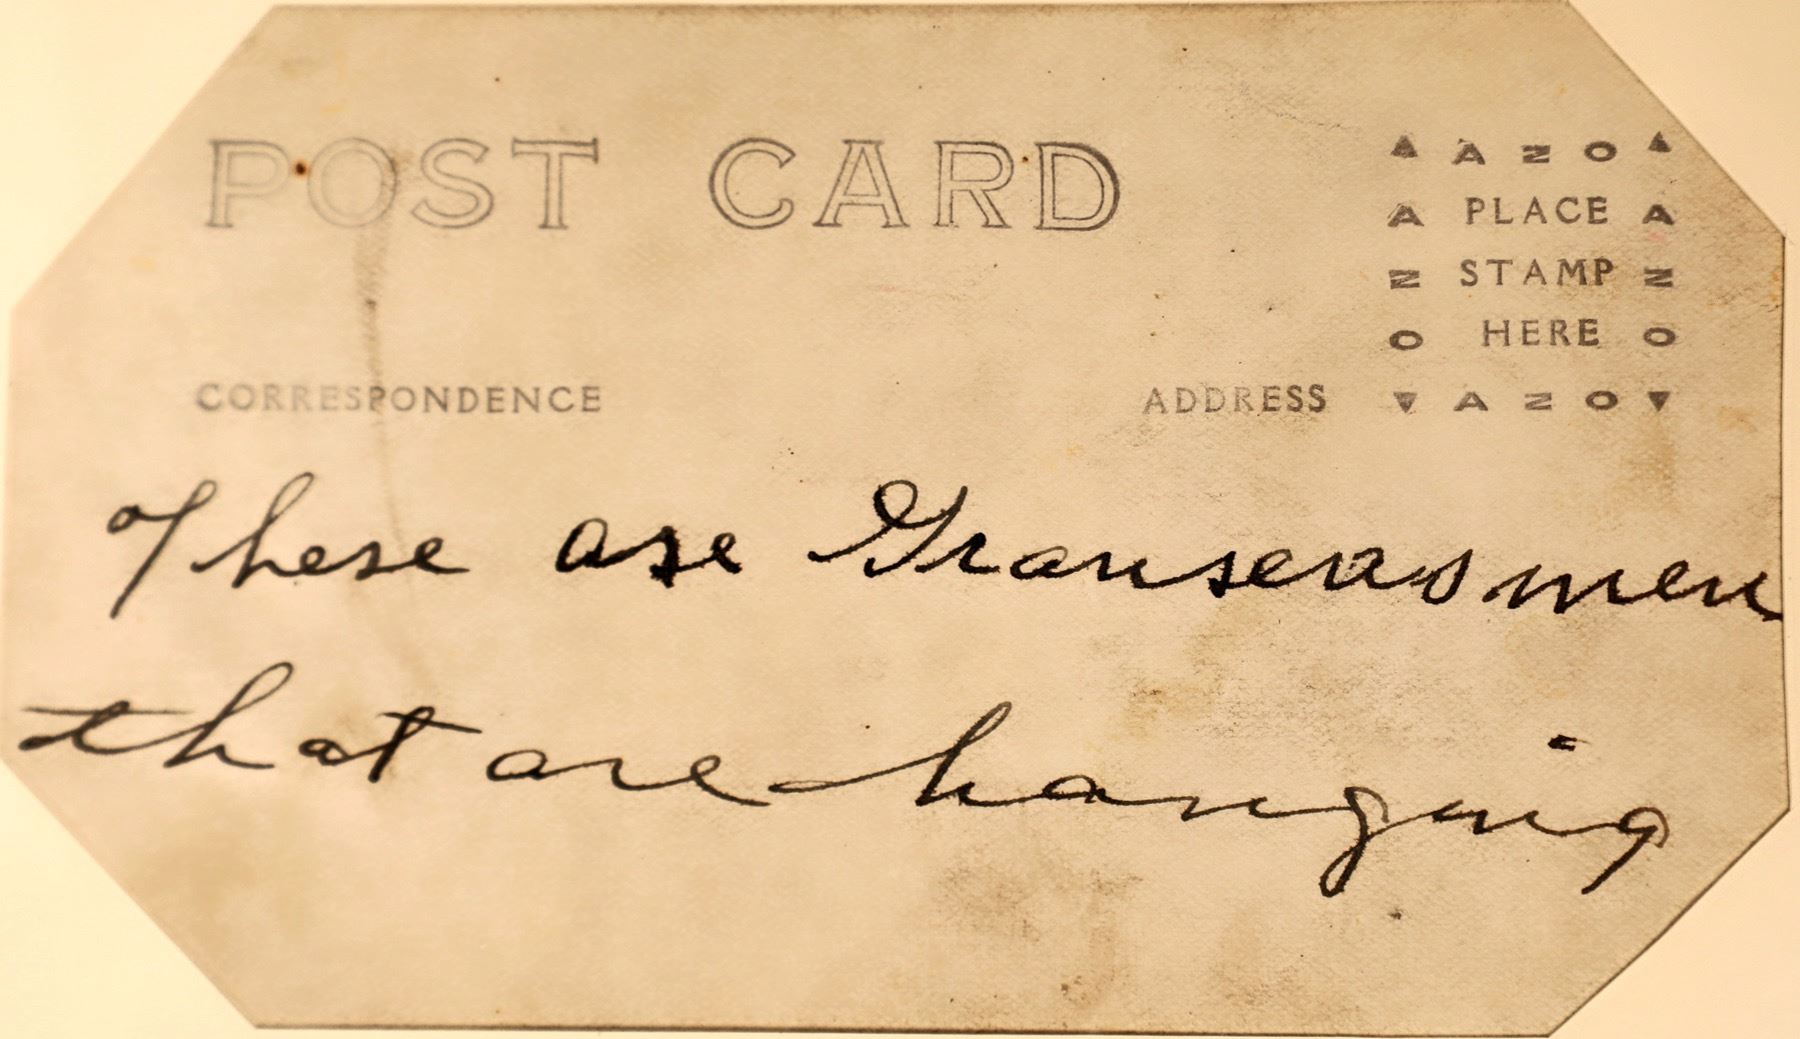 POST CARD
▲ AZO ▲
A PLACE A
Z STAMP Z
O HERE O
CORRESPONDENCE
ADDRESS
▼ AZO ▼
These are men
that are hanging